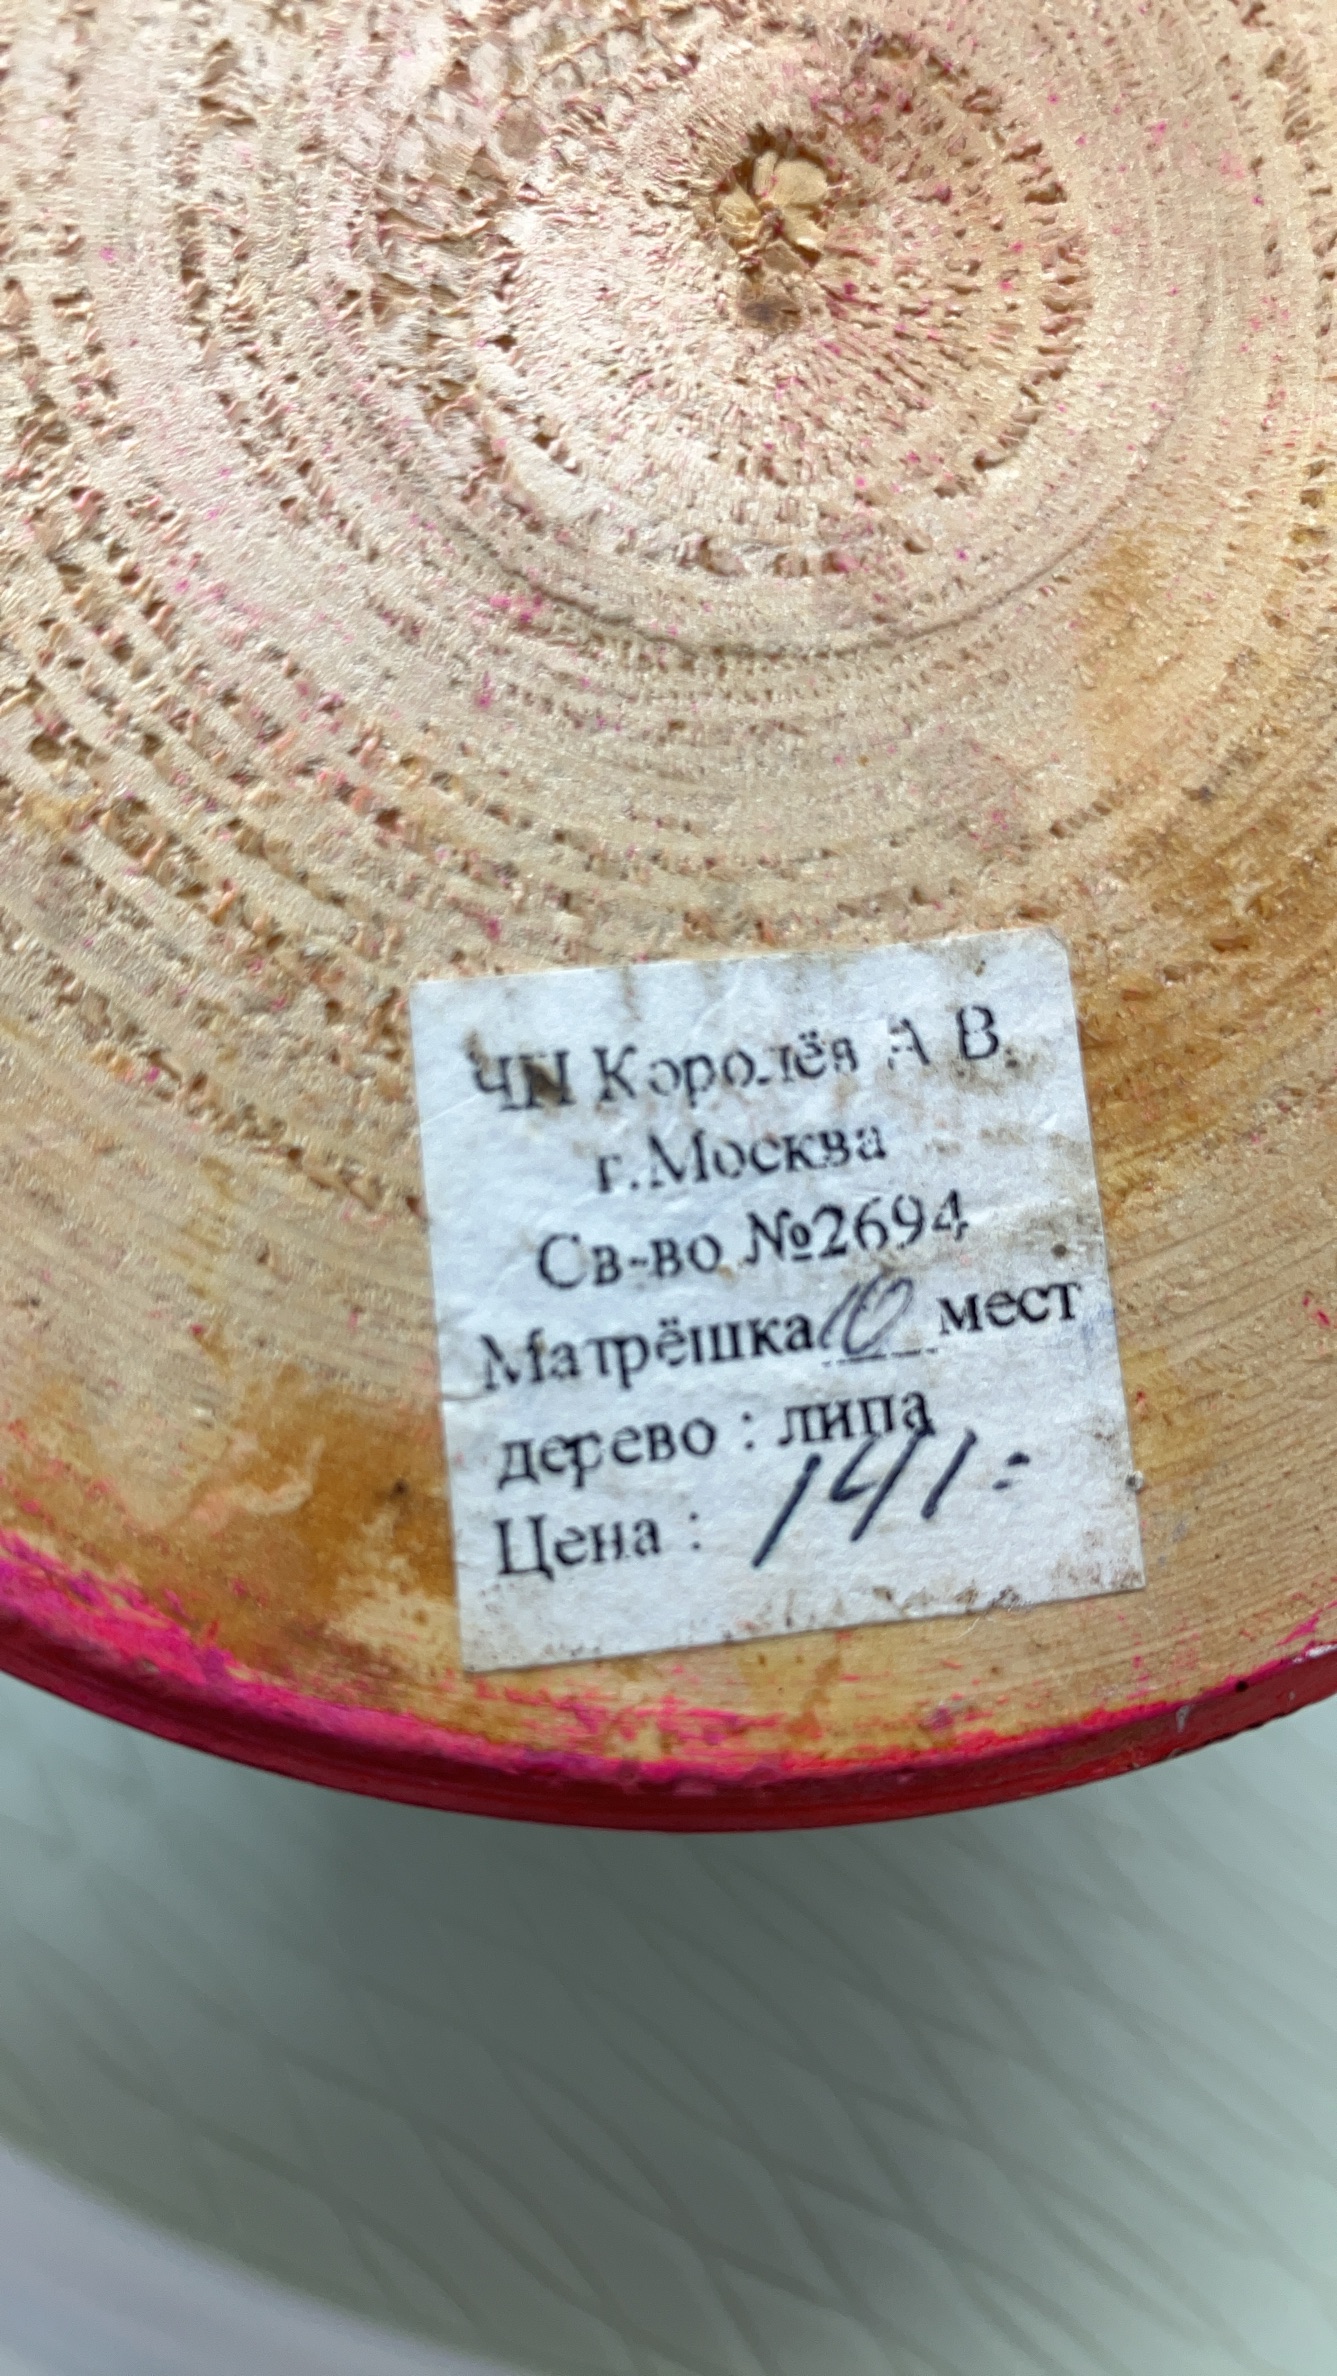 ЧП Королёв А В.
г.Москва
Св-во №2694
Матрёшка 10 мест
дерево : липа
Цена : 141=